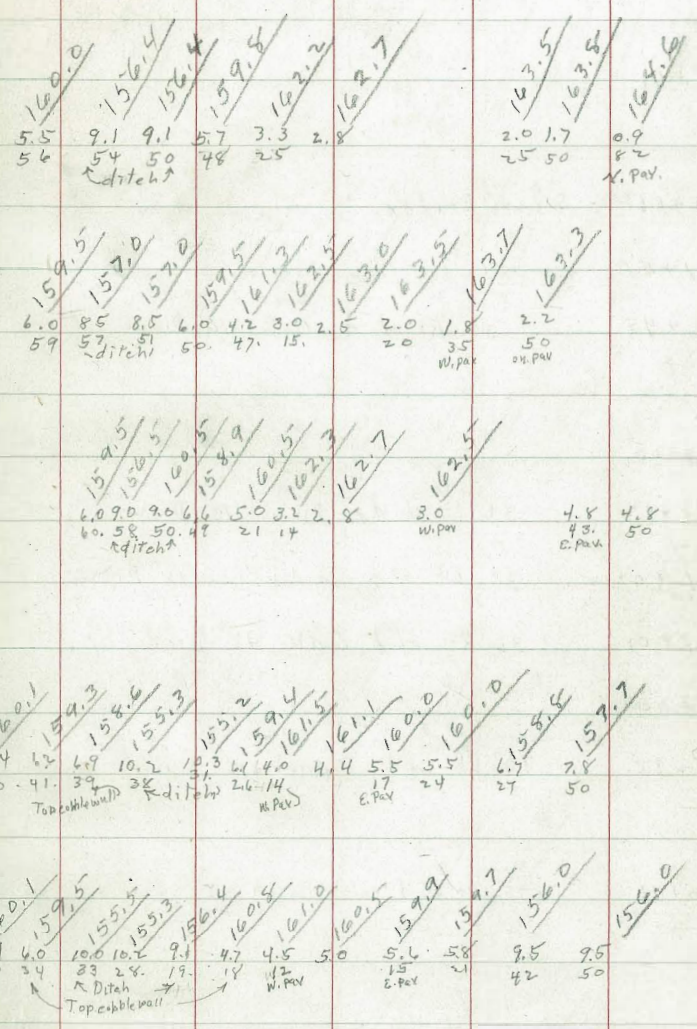 160.0 156.4 156.4 159.8 162.2 162.7 163.5 163.8 164.6
5.5 9.1 9.1 5.7 3.3 2.8 2.0 1.7 0.9
56 54 50 48 25 25 50 82
ditch W. Pav.
159.5 157.0 157.0 159.5 161.3 162.5 163.0 163.5 163.7 163.3
6.0 85 8.5 6.0 4.2 3.0 2.5 2.0 1.8 2.2
59 57 51 50. 47. 15. 20 35 50
ditch W. Pav on. pav
159.5 156.5 160.5 158.9 160.5 162.3 162.7 162.5
6.0 9.0 9.0 6.6 5.0 3.2 2.8 3.0 4.8 4.8
60. 58 50. 49 21 14 W. Pav 43. 50
ditch E. Pav.
60.1 159.3 158.6 155.3 155.2 159.4 161.5 161.1 160.0 160.0 158.8 157.7
4 6.2 6.9 10.2 10.3 6.1 4.0 4.4 5.5 5.5 6.7 7.8
41. 39 38 31. 26 14 17 24 27 50
Top cobble wall ditch W. Pav E. Pav
60.1 159.5 155.5 155.3 156.4 160.8 161.0 160.5 159.9 159.7 156.0 156.0
6.0 10.0 10.2 9.1 4.7 4.5 5.0 5.6 5.8 9.5 9.5
34 33 28. 19. 18 12 15 21 42 50
Ditch W. Pav E. Pav
Top cobble wall